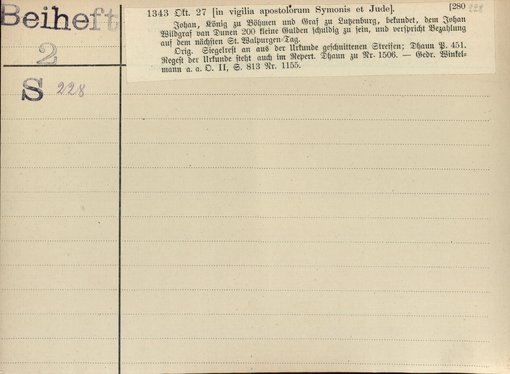 Beiheft
2
S 228
1343 Okt. 27 [in vigilia apostolorum Symonis et Jude]. [280 228
Johan, König zu Böhmen und Graf zu Lutzenburg, bekundet, dem Johan
Wildgraf van Dunen 200 kleine Gulden schuldig zu sein, und verspricht Bezahlung
auf dem nächsten St. Walpurgen-Tag.
Orig. Siegelrest an aus der Urkunde geschnittenen Streifen; Dhaun P. 451.
Regest der Urkunde steht auch im Repert. Dhaun zu Nr. 1506. — Gedr. Winkel-
mann a. a. O. II, S. 813 Nr. 1155.